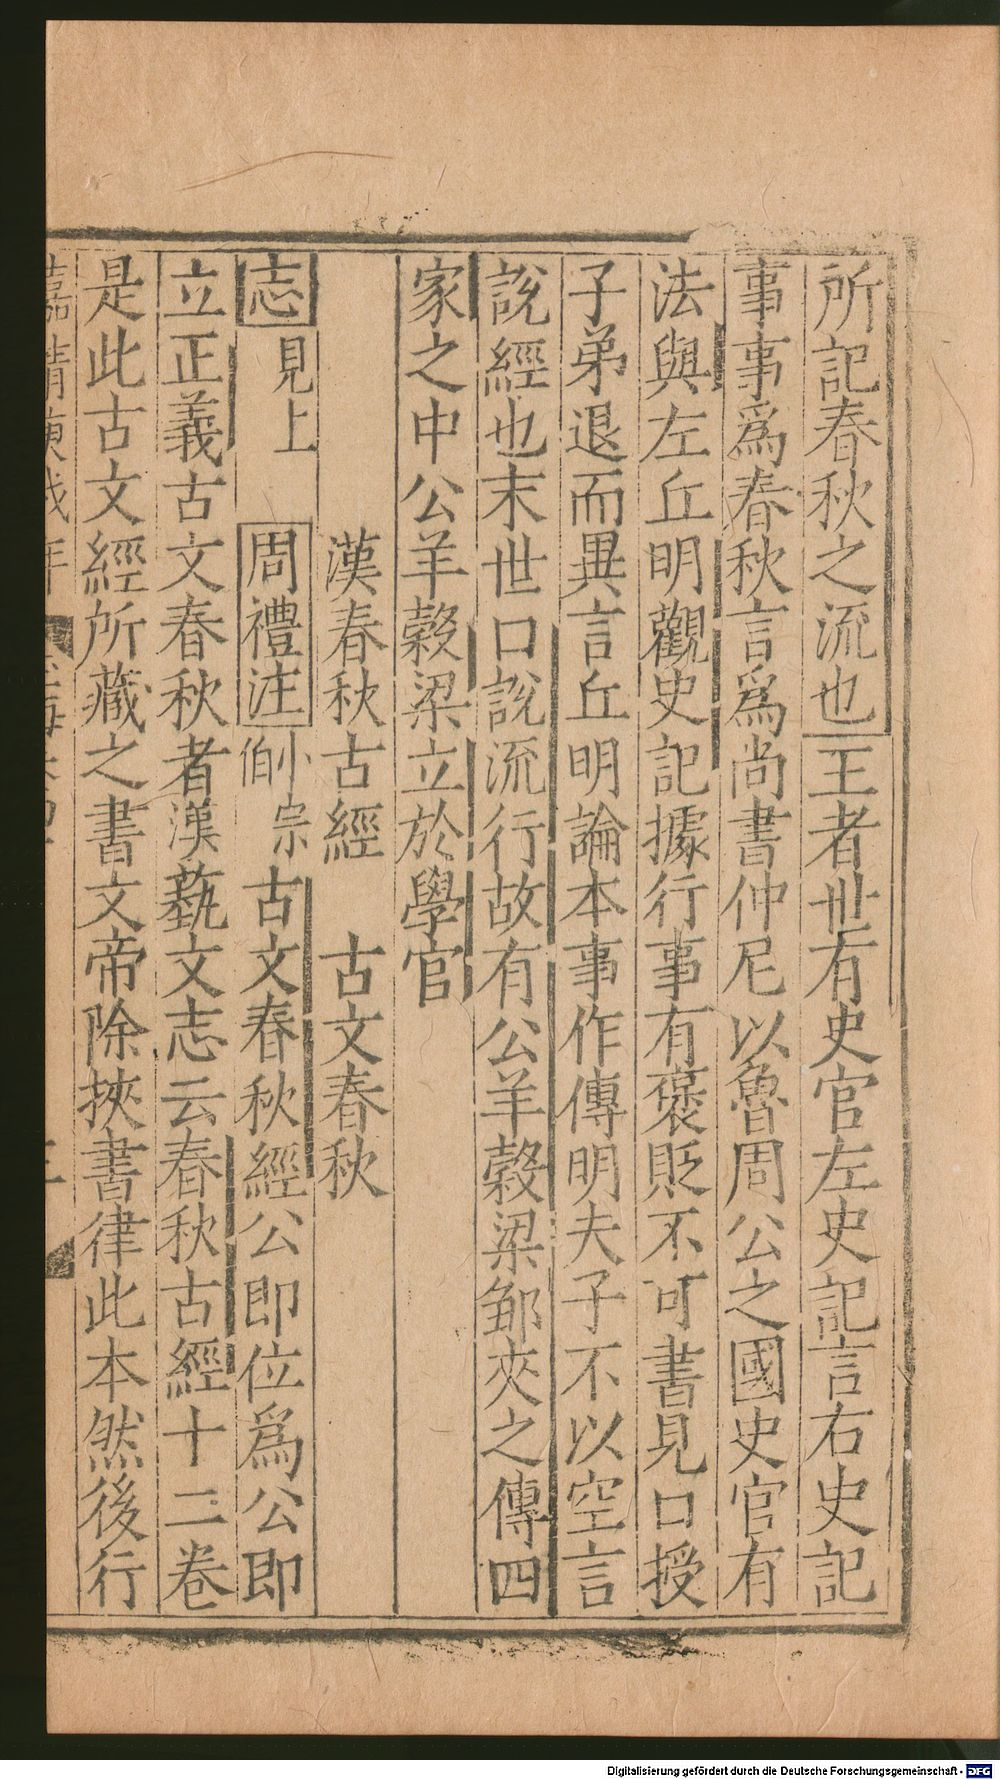 所記春秋之流也王者世有史官左史記言右史記
事事爲春秋言爲尚書仲尼以魯周公之國史官有
法與左丘明觀史記據行事有褒貶不可書見口授
子弟退而異言丘明論本事作傳明夫子不以空言
說經也末世口說流行故有公羊穀梁鄒夾之傳四
家之中公羊穀梁立於學官
漢春秋古經　古文春秋
志見上　周禮注小宗伯古文春秋經公即位爲公即
立正義古文春秋者漢蓺文志云春秋古經十二卷
是此古文經所藏之書文帝除挾書律此本然後行
嘉靖 年
Digitalisierung gefördert durch die Deutsche Forschungsgemeinschaft - DFG